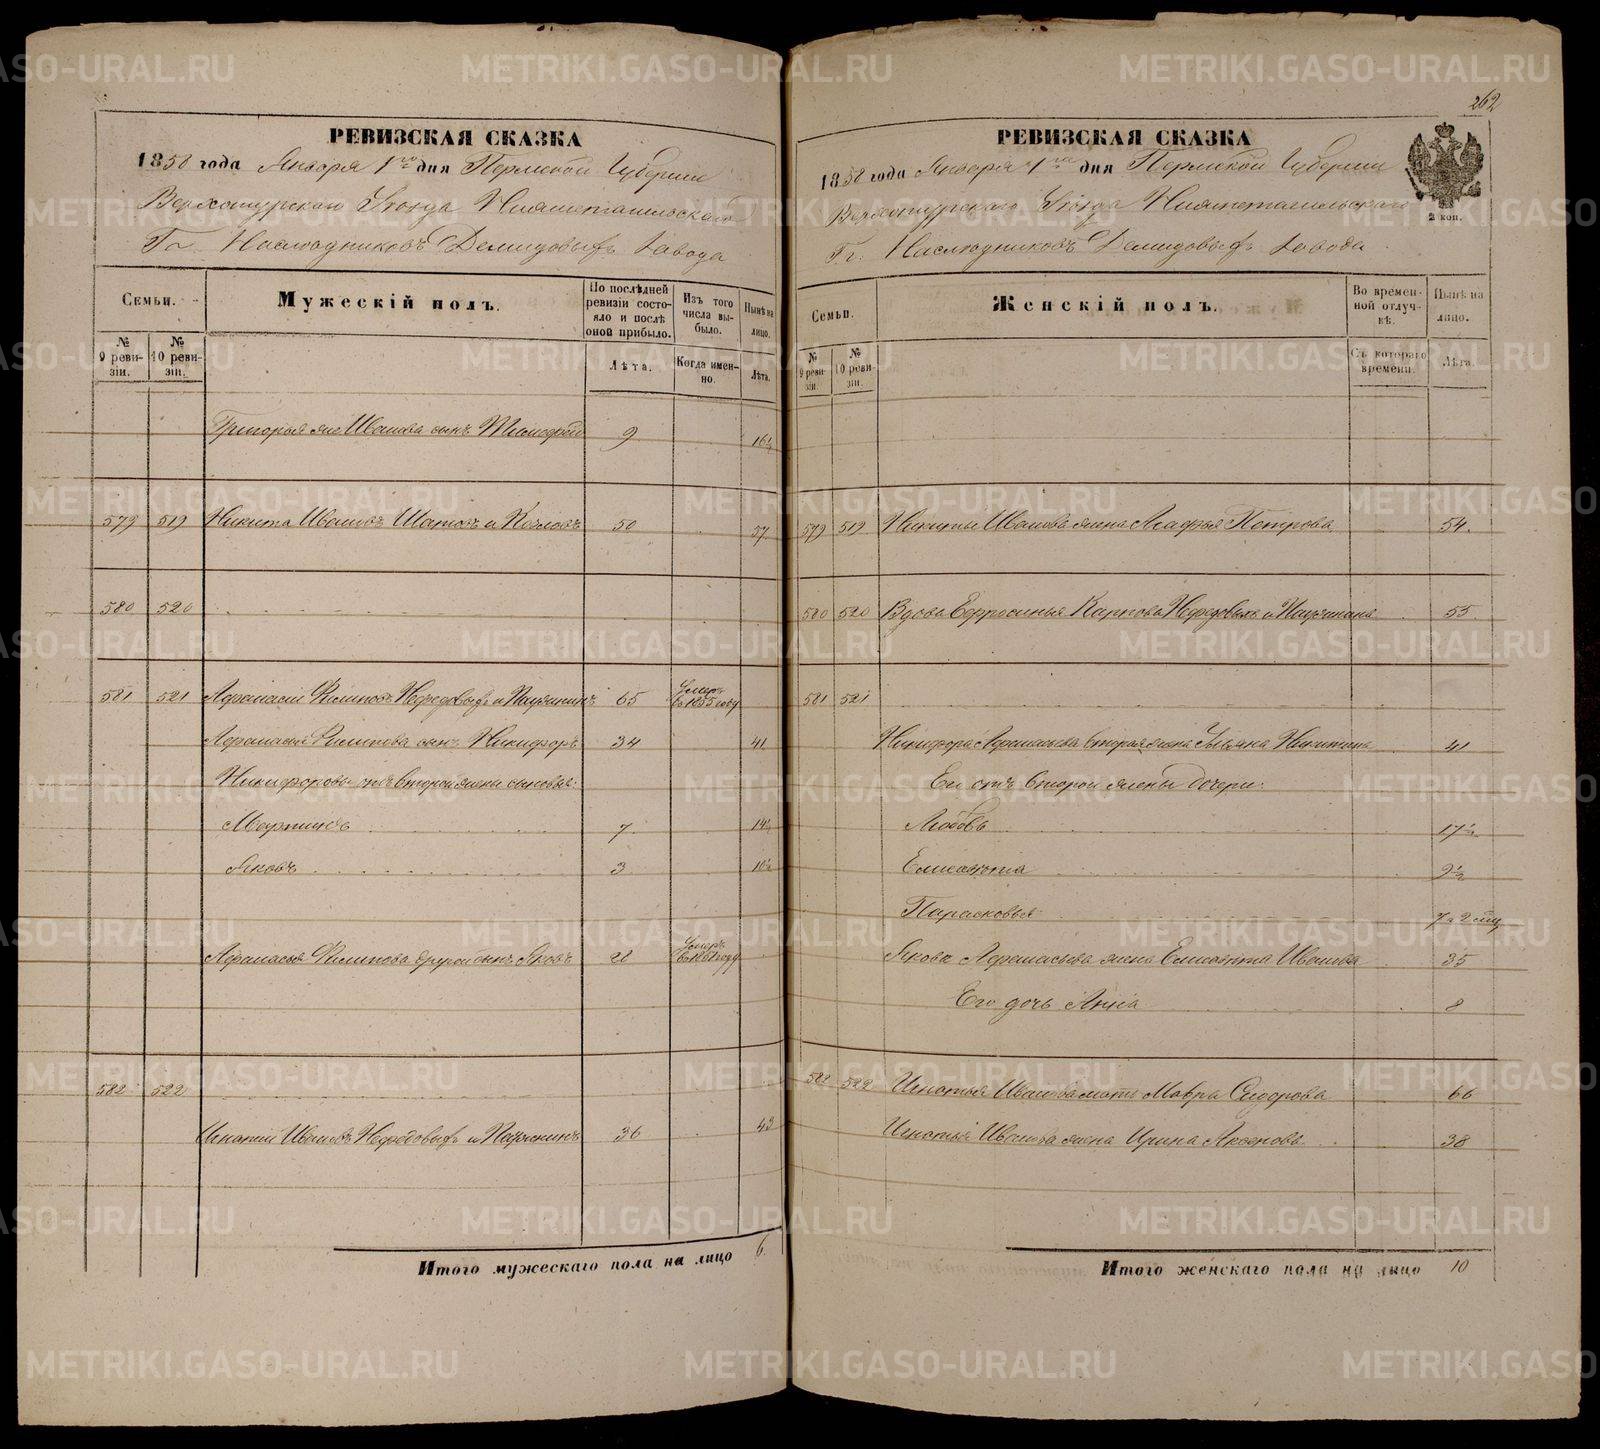 262
РЕВИЗСКАЯ СКАЗКА
1858 года Января 1го дня Пермской Губернии
Верхотурскаго Уѣзда Нижнетагильскаго
Гг. Наслѣдниковъ Демидовыхъ Завода
Семьи.
Мужескій полъ.
По послѣдней ревизіи состояло и послѣ оной прибыло.
Изъ того числа выбыло.
Нынѣ на лицо.
№ 9 ревизіи.
№ 10 ревизіи.
Лѣта.
Когда именно.
Лѣта.
Григорья же Иванова сынъ Тимофей 9 16½
579 519 Никита Ивановъ Шатовъ и Козловъ 50 57
580 520
581 521 Афанасій Филиповъ Нефедовыхъ и 65 Умеръ въ 1855 году
Афанасья Филипова сынъ Никифоръ 34 41
Никифоровы отъ второй жены сыновья:
Мартинъ 7 14½
Яковъ 3 10½
Афанасья Филипова другой сынъ Яковъ 28 Умеръ въ году
582 522
Игнатій Ивановъ Нефедовыхъ и 36 43
Итого мужескаго пола на лицо 6
РЕВИЗСКАЯ СКАЗКА
1858 года Января 1го дня Пермской Губернии
Верхотурскаго Уѣзда Нижнетагильскаго
Гг. Наслѣдниковъ Демидовыхъ Завода
2 коп.
Семьи.
Женскій полъ.
Во временной отлучкѣ.
Нынѣ на лицо.
№ 9 ревизіи.
№ 10 ревизіи.
Съ котораго времени.
Лѣта.
579 519 Никиты Иванова жена Агафья Петрова 54
580 520 Вдова Ефросинья Карпова Нефедовыхъ и 55
581 521
Никифора Афанасьева вторая жена Ульяна Никитина 41
Его отъ второй жены дочери:
Любовь 17½
Елисавета 9½
Парасковья 7 и 2 мѣц
Якова Афанасьева жена Елисавета Иванова 35
Его дочь Анна 8
582 522 Игнатья Иванова мать Мавра Сидорова 66
Игнатья Иванова жена Ирина Аксенова 38
Итого женскаго пола на лицо 10
METRIKI.GASO-URAL.RU